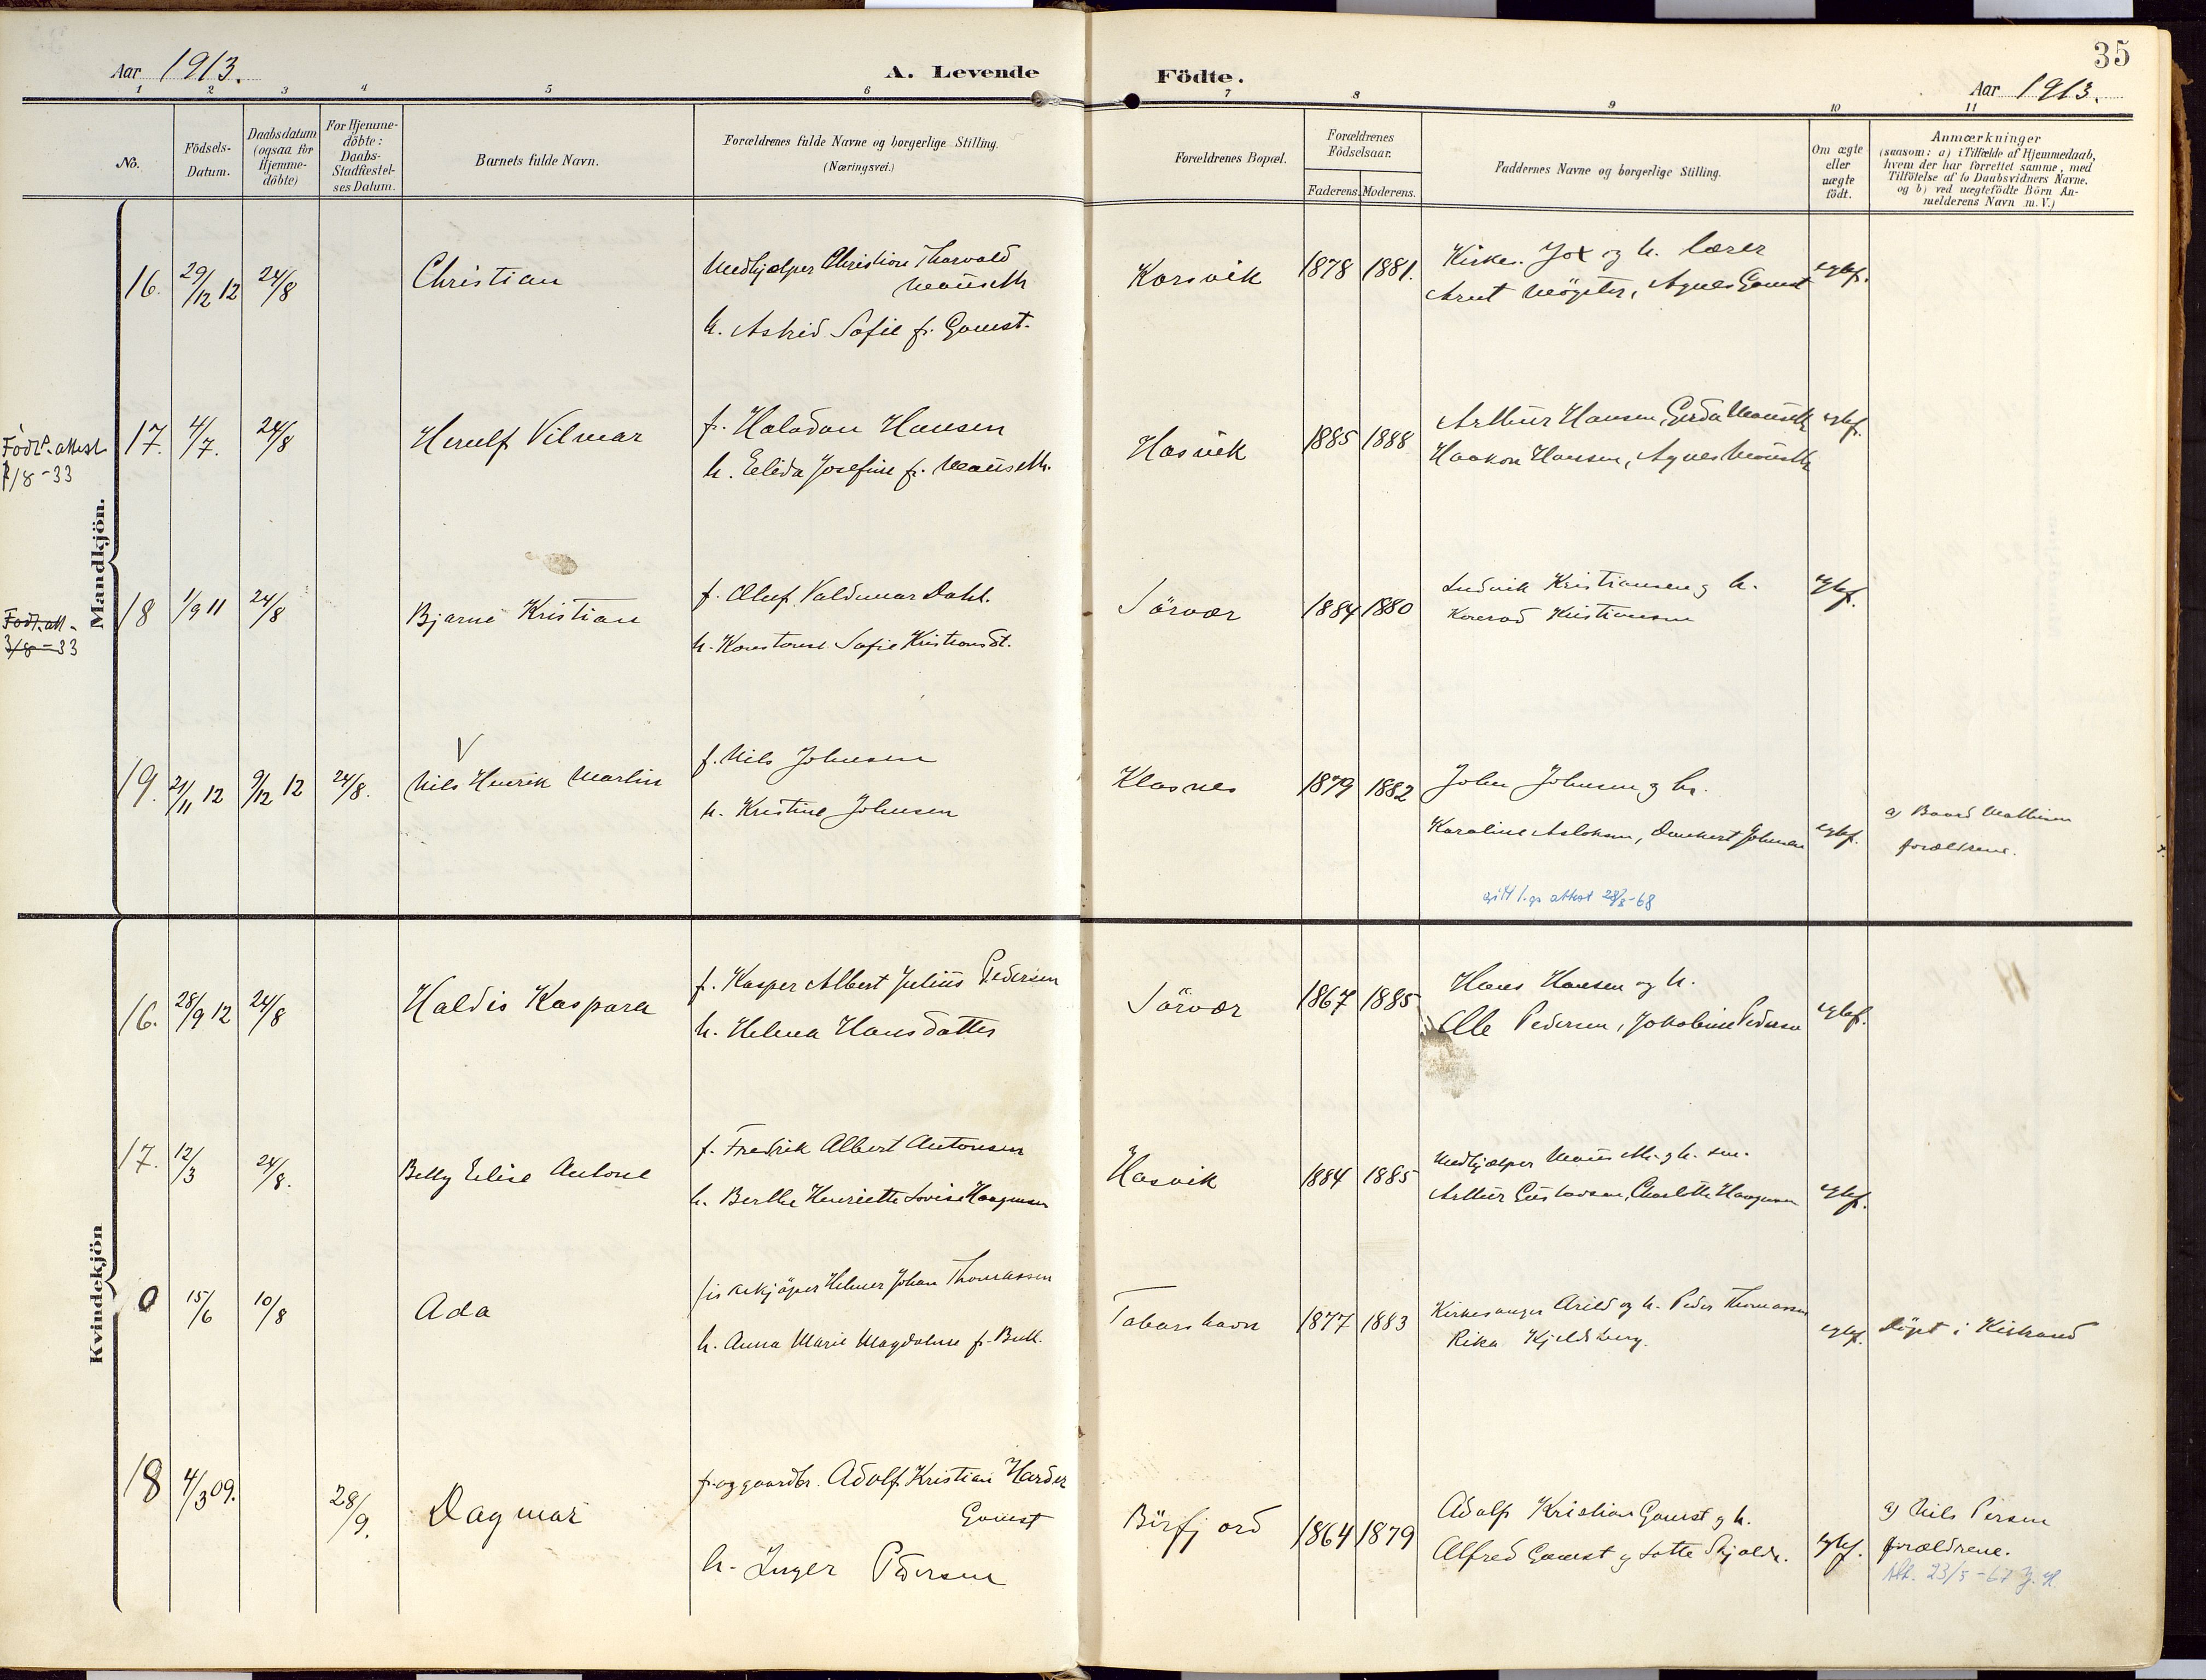 35
Aar 1913.
A. Levende Födte.
Aar 1913.
1 2 3 4 5 6 7 8 9 10 11
No.
Födsels-
Datum.
Daabsdatum
(ogsaa for
Hjemme-
döbte)
For Hjemme-
döbte:
Daabs-
Stadfæstel-
ses Datum.
Barnets fulde Navn.
Forældrenes fulde Navne og borgerlige Stilling.
(Næringsvei.)
Forældrenes Bopæl.
Forældrenes
Födselsaar.
Faderens. Moderens.
Faddernes Navne og borgerlige Stilling.
Om ægte
eller
uægte
födt.
Anmærkninger
(saasom: a) i Tilfælde af Hjemmedaab,
hvem der har forrettet samme, med
Tilföielse af to Daabsvidners Navne,
og b) ved uægtefödte Börn An-
melderens Navn m. V.)
Mandkjön.
16. 29/12 12 24/8 Christian
Medhjælper Christian Thorvald
Mauseth
h. Astrid Sofie f. Gamst.
Korsvik 1878 1881.
Kirkes. og h. lærer
Arnt Agnes Gamst
egtef.
Födt.attest
/8-33
17. 4/7. 24/8 Herulf Vilmar
f. Halvdan Hansen
h. Elida Josefine f. Mauseth.
Hasvik 1885 1888
Arthur Hansen, Gerda Mauseth
Haakon Hansen, Agnes Mauseth
egtef.
Födt.att.
3/8-33
18 1/9 11 24/8 Bjarne Kristian
f. Oluf Valdemar Dahl.
h. Konstanse Sofie Kristiansdt.
Sörvær 1884 1880
Ludvik Kristiansen og h.
Konrad Kristiansen
egtef.
V
19. 21/11 12 9/12 12 24/8. Nils Henrik Martin
f. Nils Johnsen
h. Kristine Johnsen
Klasnes 1879 1882
John Johnsen og h.
Karoline Aslaksen, Johnsen
egtef.
a) Baard Mathisen
forældrene.
attest 28/8-68
Kvindekjön
16. 28/9 12 24/8 Haldis Kaspara
f. Kasper Albert Julius Pedersen
h. Helena Hansdatter
Sörvær 1867 1885
Hans Hansen og h.
Ole Pedersen, Jakobine Pedersen
egtef.
17. 12/3 24/8. Betty Elise Antone
f. Fredrik Albert Antonsen
h. Berthe Henriette Lovise Haagensen
Hasvik 1884 1885
Medhjælper Mauseth og h. sm.
Arthur Gustavsen, Charlotte Haagensen
egtef.
0 15/6 10/8 Ada
fiskekjöper Helmer Johan Thomassen
h. Anna Marie Magdalene f. Bull.
Tobarshavn 1877 1883
Kirkesanger Arild og h. Peder Thomassen
Rika Kjeldsberg.
egtef. döpt i Kistrand
18 4/3 09. 28/9. Dagmar
f. og gaardbr. Adolf Kristian Harder
Gamst
h. Inger Pedersen
Börfjord 1864 1879
Adolf Kristian Gamst og h.
Alfred Gamst og Lotte
egtef.
a) Nils Persen
forældrene.
Att. 23/5-67